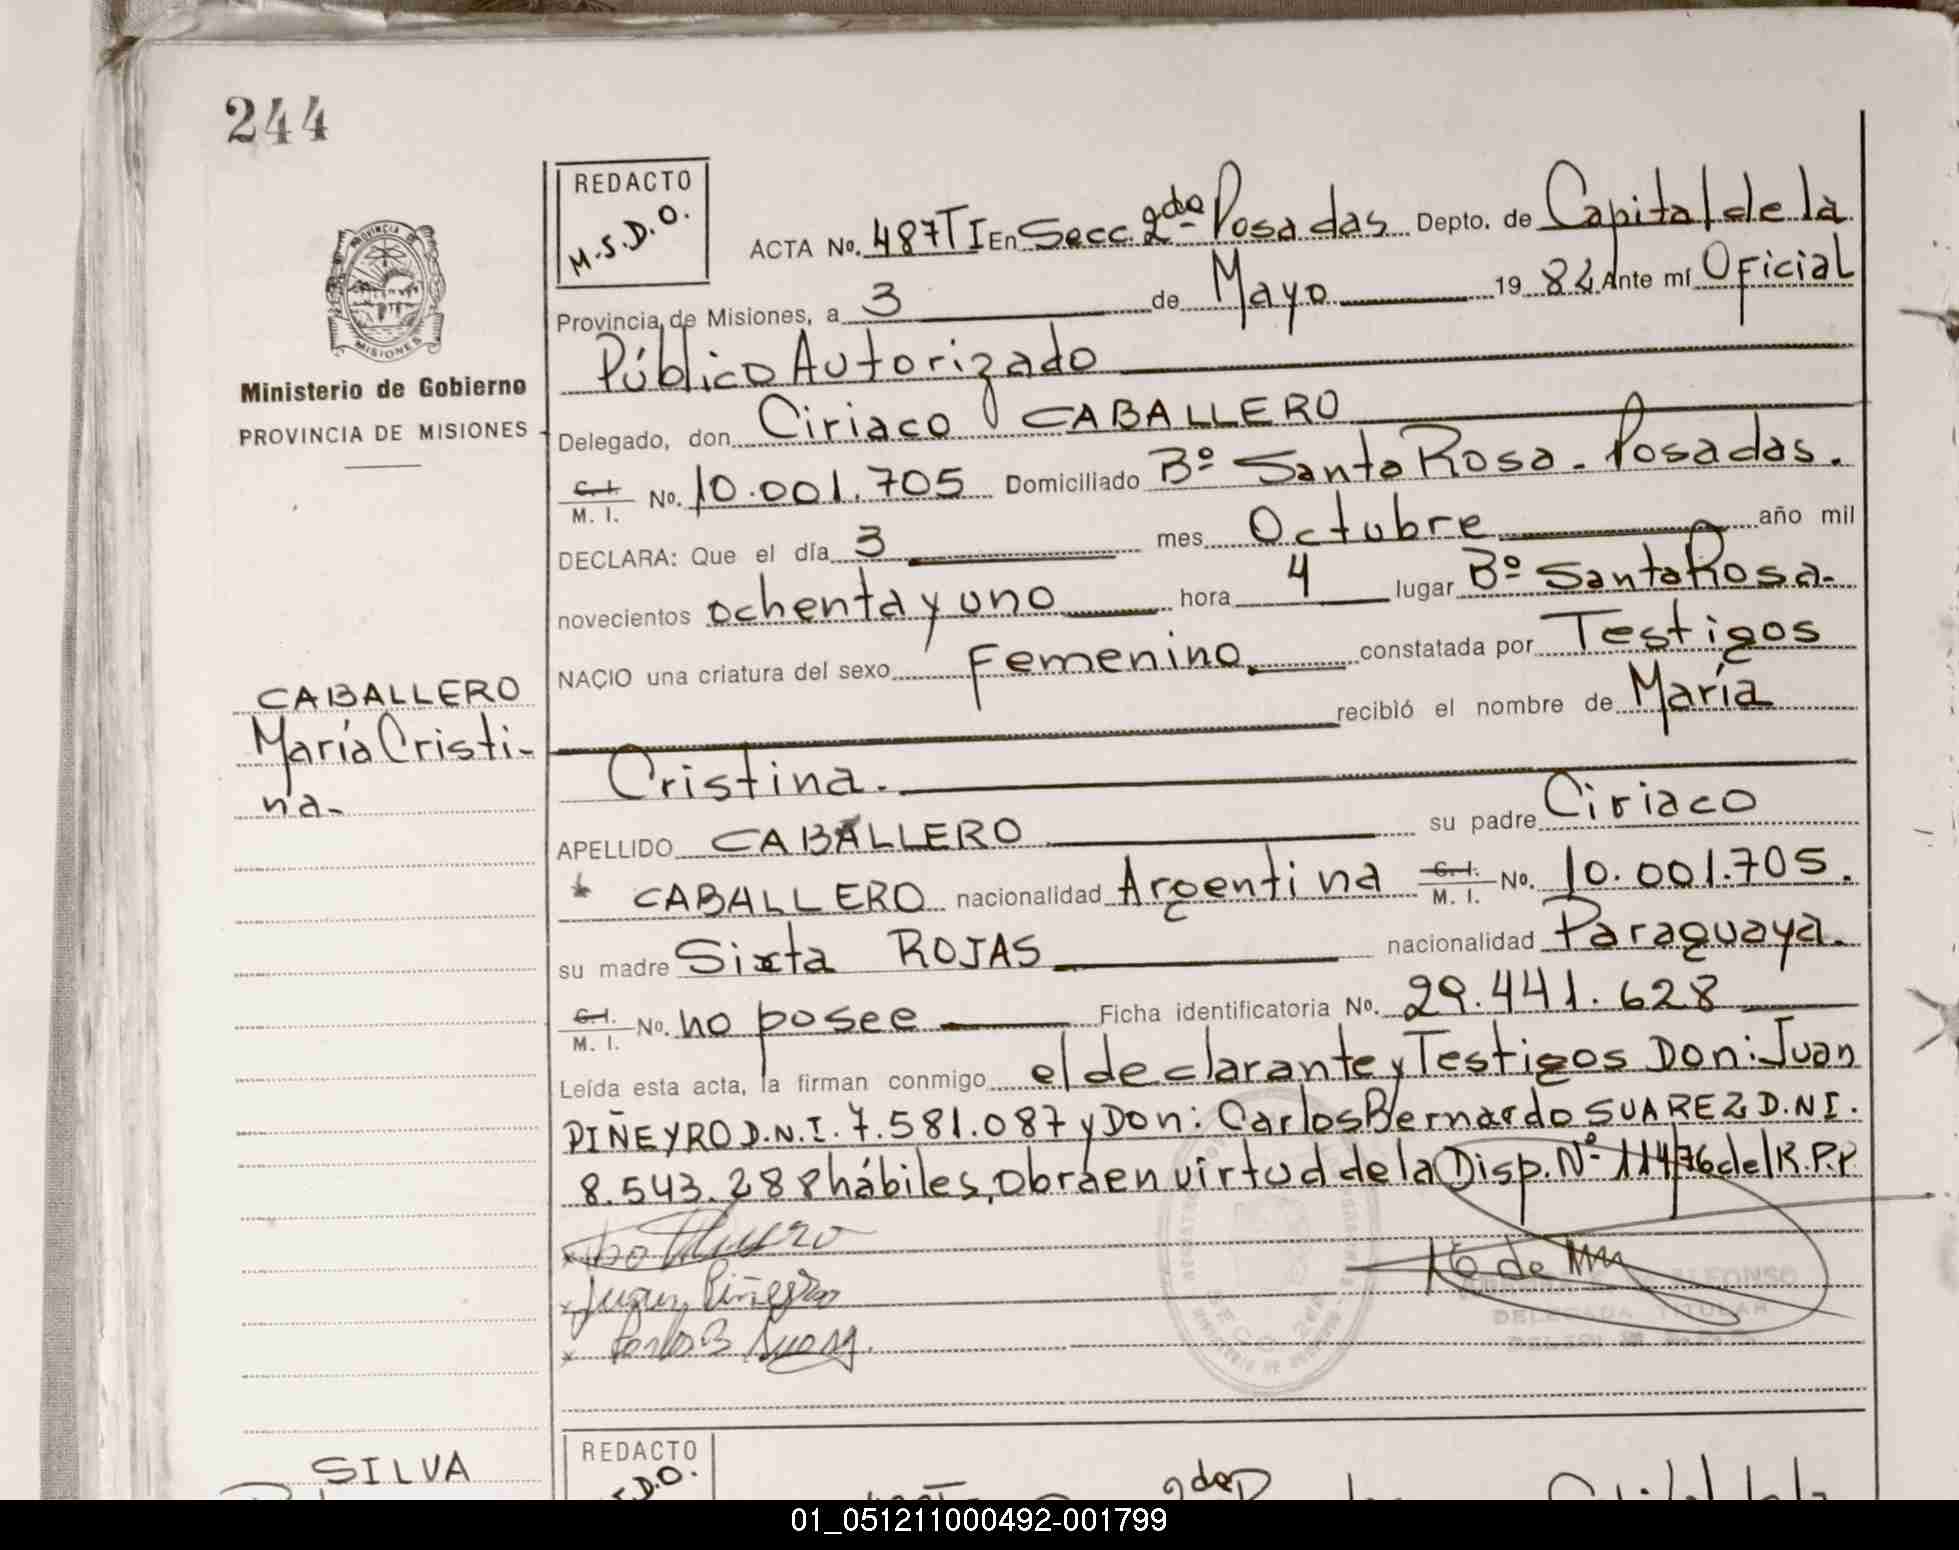 244
PROVINCIA DE
MISIONES
Ministerio de Gobierno
PROVINCIA DE MISIONES
CABALLERO
María Cristi-
na-
REDACTO
M.S.D.O.
ACTA No. 487TI En Secc. 2da Posadas Depto. de Capital de la
Provincia de Misiones, a 3 de Mayo 1984 Ante mí Oficial
Público Autorizado
Delegado, don Ciriaco CABALLERO
C.I. M. I. No. 10.001.705 Domiciliado Bº Santa Rosa - Posadas.
DECLARA: Que el día 3 mes Octubre año mil
novecientos ochenta y uno hora 4 lugar Bº Santa Rosa-
NACIO una criatura del sexo Femenino constatada por Testigos
recibió el nombre de María
Cristina.
APELLIDO CABALLERO su padre Ciriaco
CABALLERO nacionalidad Argentina C.I. M. I. No. 10.001.705.
su madre Sixta ROJAS nacionalidad Paraguaya.
C.I. M. I. No. no posee Ficha identificatoria No. 29.441.628
Leída esta acta, la firman conmigo el declarante y Testigos Don: Juan
PIÑEYRO D.N.I. 7.581.087 y Don: Carlos Bernardo SUAREZ D.NI.
8.543.288 hábiles, obra en virtud de la Disp. Nº 114/76 del R.P.P
Juan Piñeyro
Carlos B Suarez
ALFONSO
DELEGADA TITULAR
SILVA
REDACTO
D.O.
2da
01_051211000492-001799